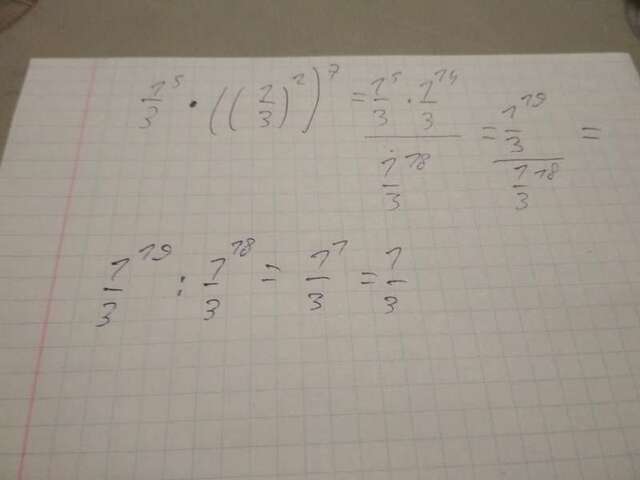 1/3^5 · ((1/3)^2)^7 = (1/3^5 · 1/3^14) / (1/3^18) = (1/3^19) / (1/3^18) =
1/3^19 : 1/3^18 = 1/3^1 = 1/3